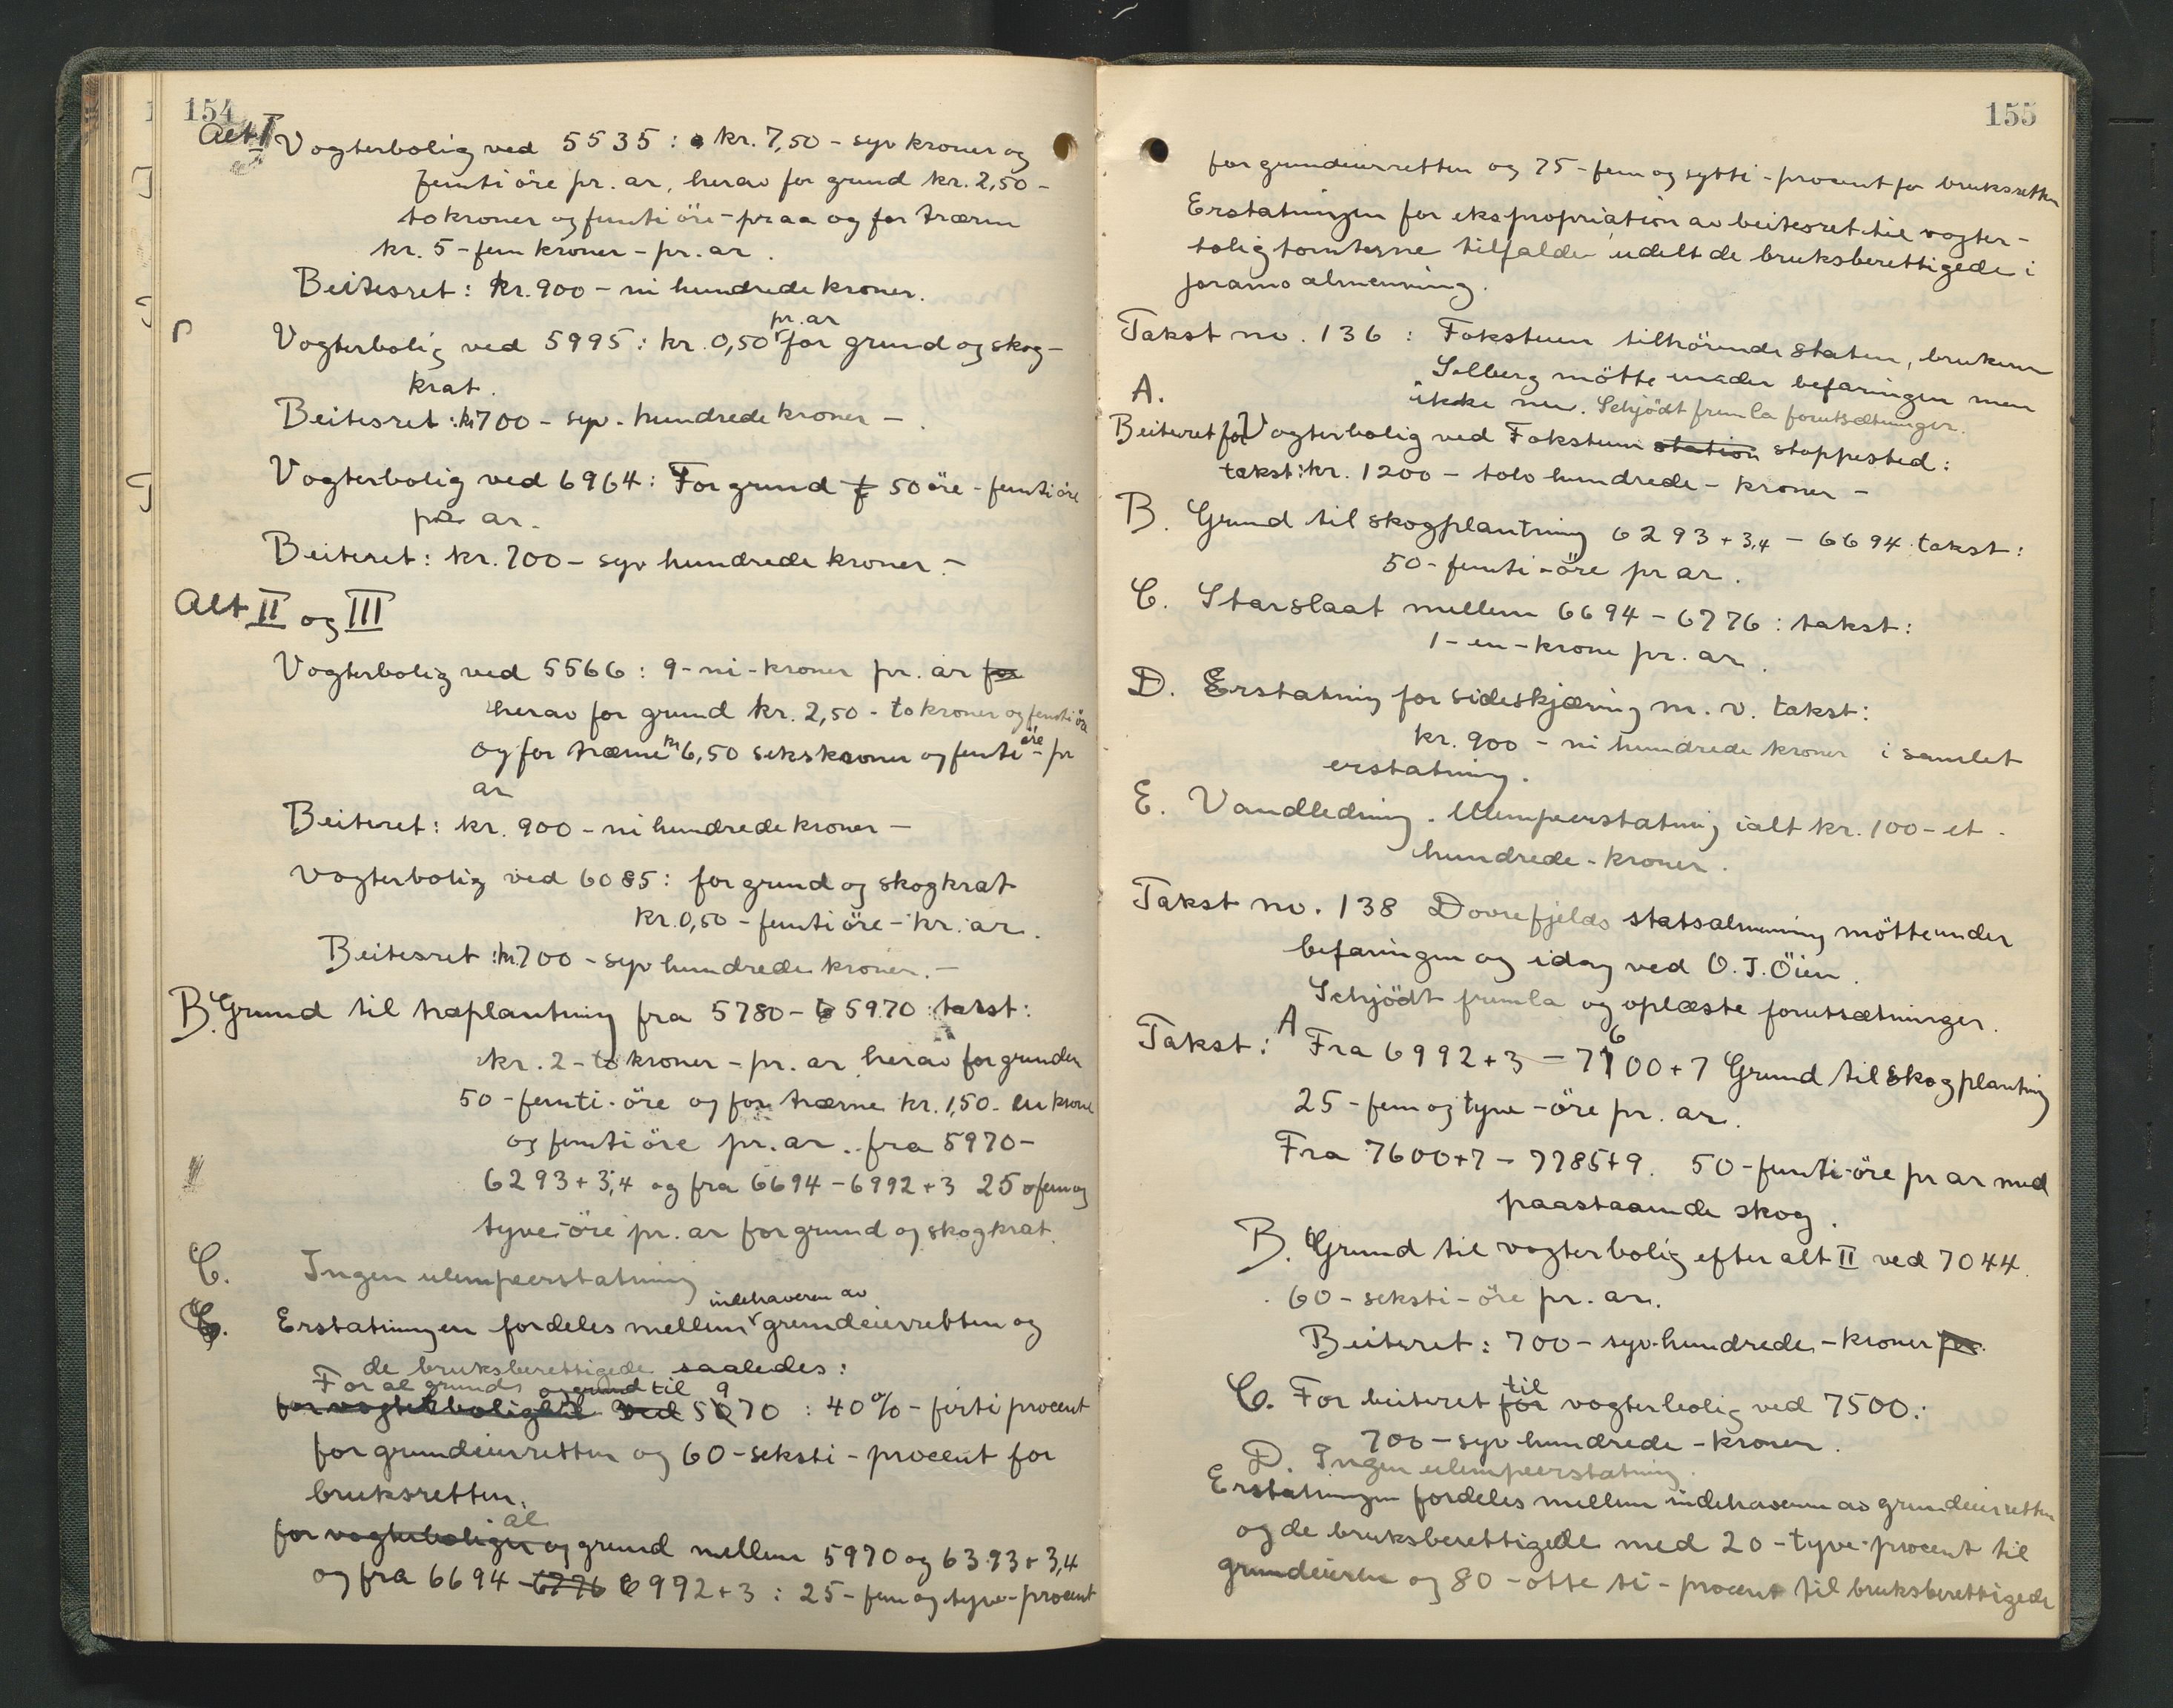 154
Alt I Vogterbolig ved 5535: kr. 7,50 - syv kroner og
femti öre pr. ar, herav for grund kr. 2,50 -
to kroner og femti öre - pr aa og for trærne
kr. 5 - fem kroner - pr. ar.
Beitesret: kr. 900 - ni hundrede kroner.
pr. ar
Vogterbolig ved 5995: kr. 0,50 for grund og skog-
krat.
Beitesret: kr 700 - syv - hundrede kroner -
Vogterbolig ved 6964: For grund f 50 öre - femti öre
pr. ar.
Beiteret: kr. 700 - syv hundrede kroner. -
Alt II og III
Vogterbolig ved 5566: 9 - ni - kroner pr. ar for
herav for grund kr. 2,50 - to kroner og femti öre
og for trærne kr 6,50 seks kroner og femti öre - pr
ar
Beiteret: kr. 900 - ni hundrede kroner -
Vogterbolig ved 6085: for grund og skogkrat
kr. 0,50 - femti öre - kr. ar.
Beitesret: kr. 700 - syv hundrede kroner. -
B. Grund til træplantning fra 5780 - 5970: takst:
kr. 2 - to kroner - pr. ar herav for grunden
50 - femti - öre og for trærne kr. 1,50 - en krone
og femti öre pr. ar.. fra 5970 -
6293 + 3,4 og fra 6694 - 6992 + 3 25 - fem og
tyve - öre pr. ar for grund og skogkrat.
C. Ingen ulempeerstatning
indehaveren av
Erstatningen fordeles mellem grundeierretten og
de bruksberettigede saaledes:
For al grund og grund til 9
for vogterbolig til ved 5970: 40% - förti procent
for grundeierretten og 60 - seksti - procent for
bruksretten.
al
for vogterboliger og grund mellem 5970 og 6393 + 3,4
og fra 6694 - 6776 6992 + 3: 25 - fem og tyve - procent
155
for grundeierretten og 75 - fem og sytti - procent for bruksretten
Erstatningen for ekspropriation av beitesret til vogter-
bolig tomterne tilfalder udelt de bruksberettigede i
Joramo almenning.
Takst no. 136: Fokstuen tilhörende staten, brukeren
Solberg mötte under befaringen men
A. ikke nu. Schjödt fremla forutsætninger.
Beiteret for Vogterbolig ved Fokstuen station stoppested:
takst: kr. 1200 - tolv hundrede - kroner -
B. Grund til skogplantning 6293 + 3,4 - 6694 takst:
50 - femti - öre pr ar.
C. Starslaat mellem 6694 - 6776: takst:
1 - en - krone pr. ar.
D. Erstatning for sideskjæring m. v. takst:
kr. 900 - ni hundrede kroner i samlet
erstatning.
E. Vandledning. Ulempeerstatning ialt kr. 100 - et -
hundrede - kroner.
Takst no. 138 Dovrefjelds statsalmenning mötte under
befaringen og idag ved O. J. Öien.
Schjödt fremla og oplæste forutsætninger.
Takst: A Fra 6992 + 3 - 7600 + 7 Grund til skogplantning
25 - fem og tyve - öre pr. ar.
Fra 7600 + 7 - 7785 + 9. 50 - femti - öre pr ar med
paastaaende skog.
B. Grund til vogterbolig efter alt II ved 7044
60 - seksti - öre pr. ar.
Beiteret: 700 - syv - hundrede - kroner pr.
C. For beiteret for til vogterbolig ved 7500:
700 - syv hundrede - kroner.
D. Ingen ulempeerstatning.
Erstatningen fordeles mellem indehaveren av grundeierretten
og de bruksberettigede med 20 - tyve - procent til
grundeieren og 80 - otte ti - procent til bruksberettigede